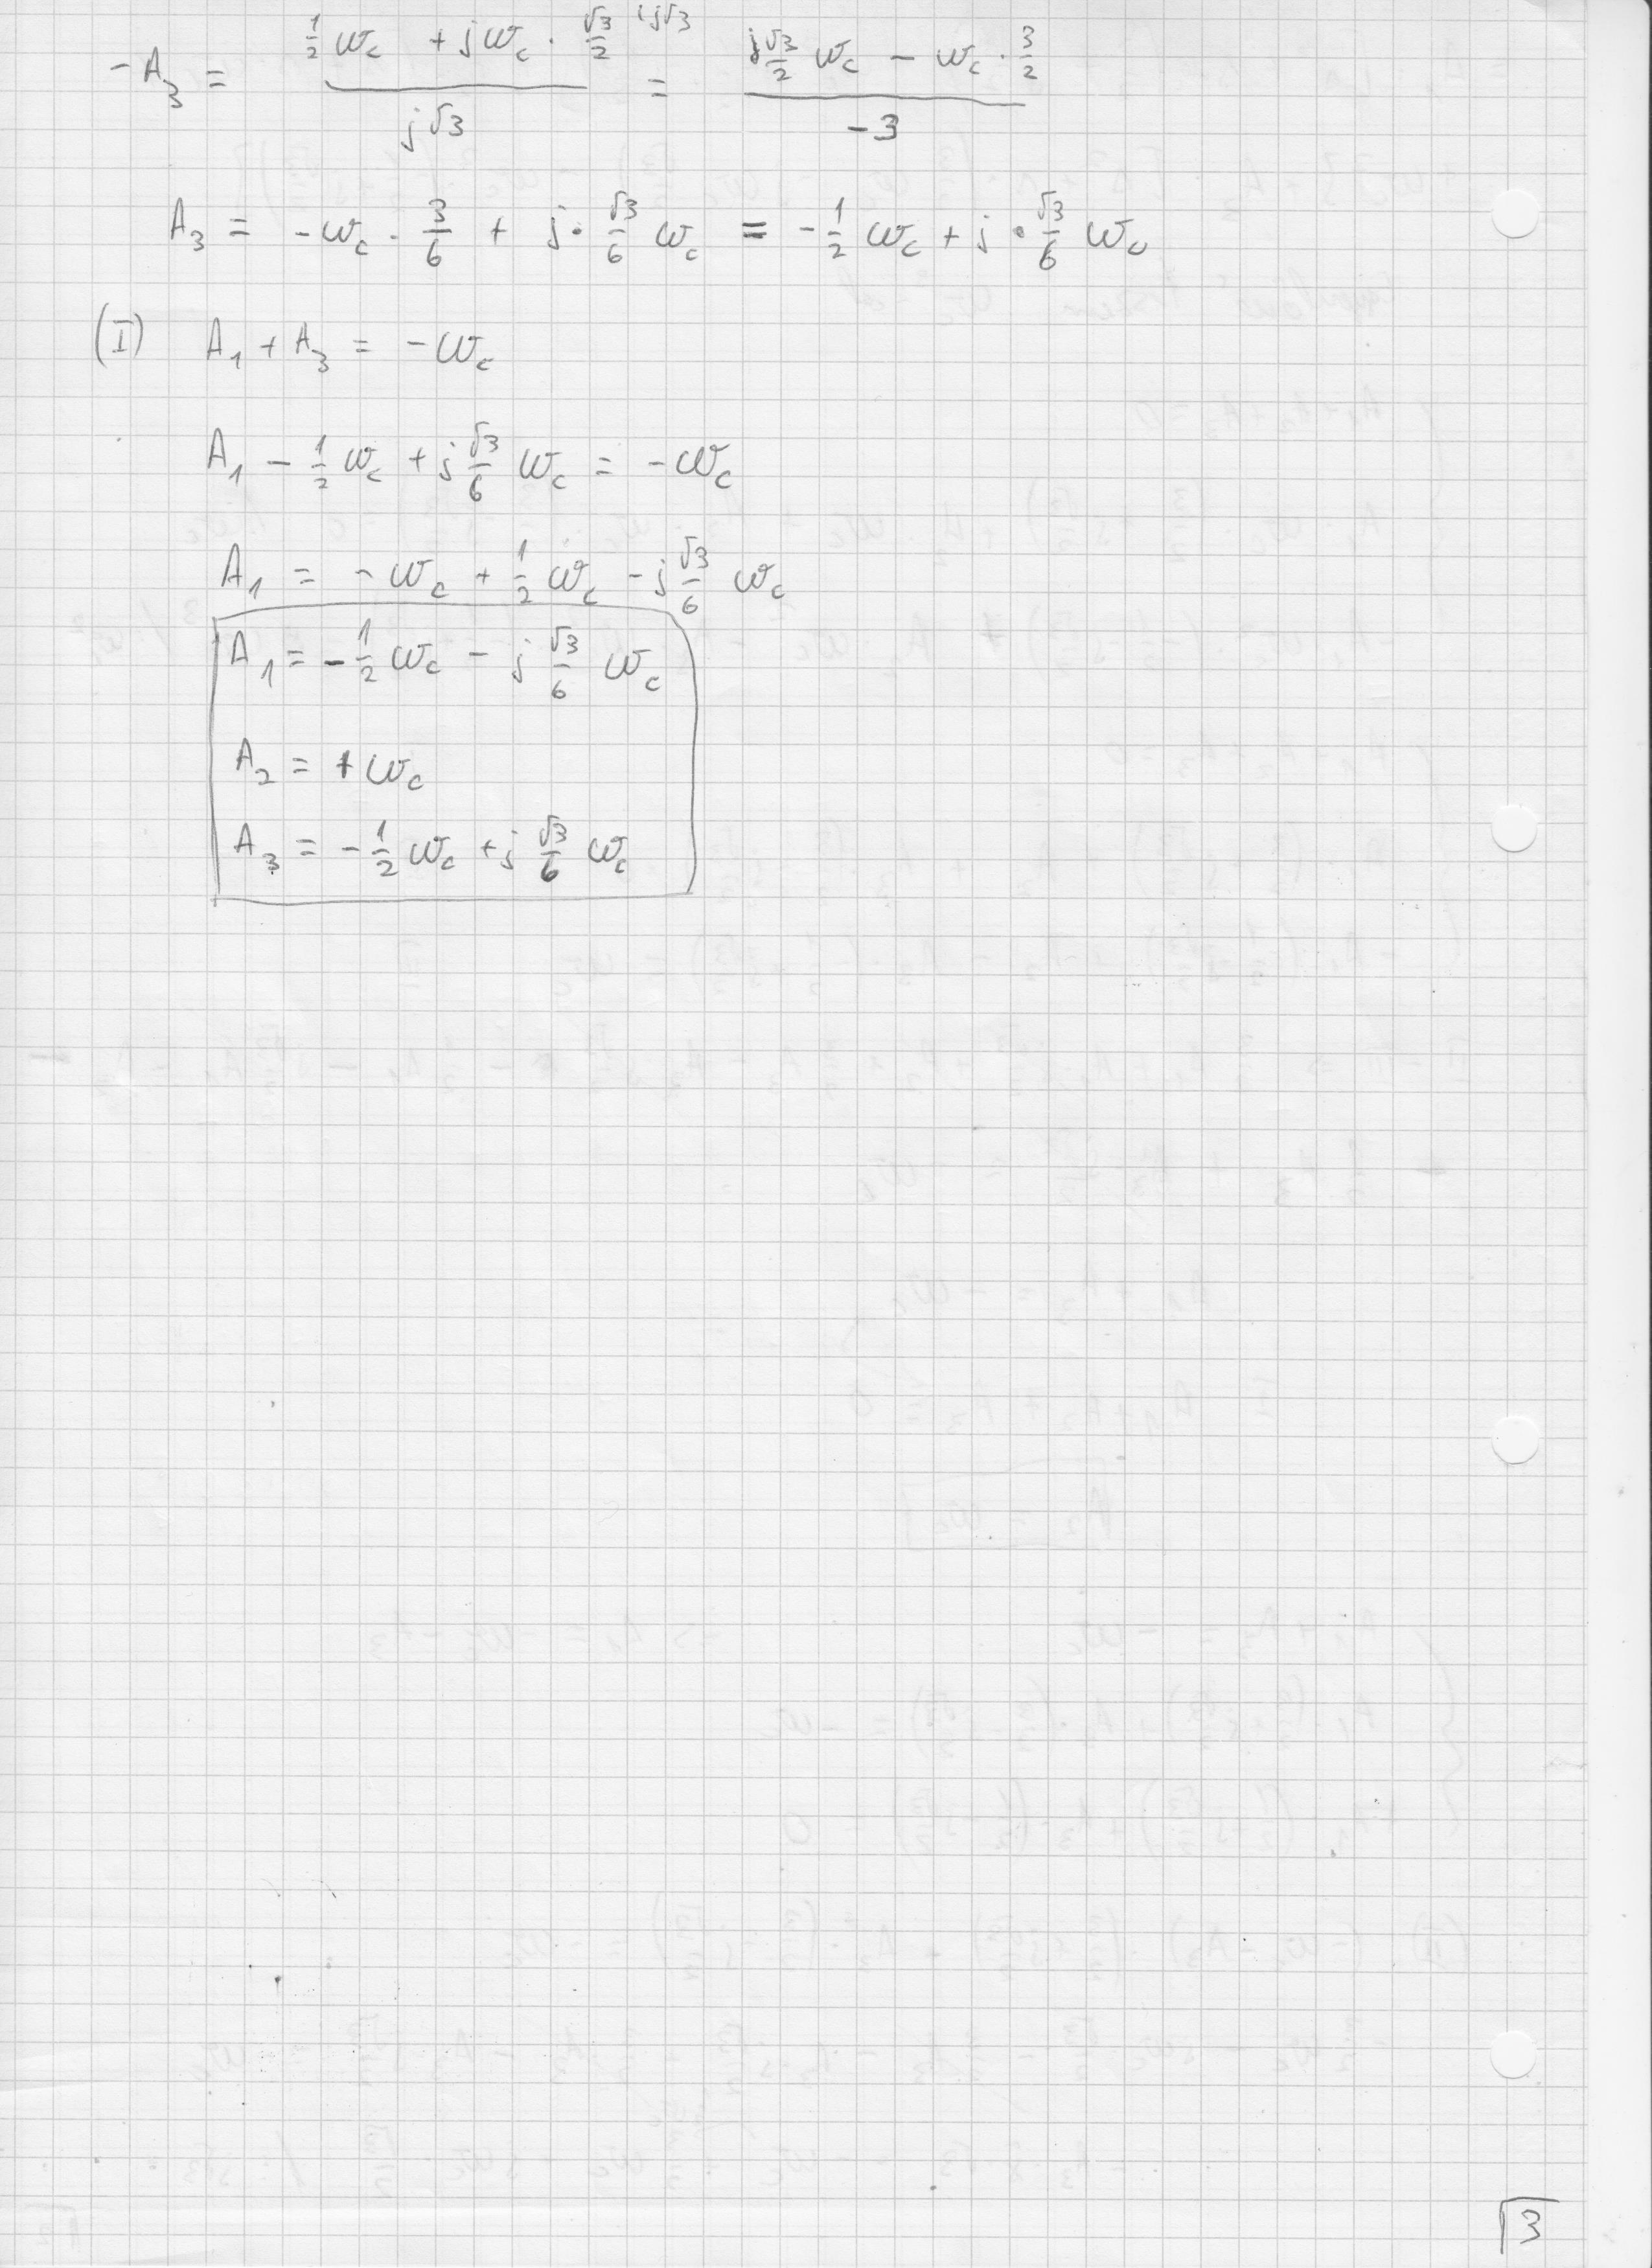 -A₃ = (½ω_c + jω_c · √3/2)/(j√3) · j√3 = (j√3/2 ω_c - ω_c · 3/2)/(-3)
A₃ = -ω_c · 3/6 + j · √3/6 ω_c = -½ ω_c + j · √3/6 ω_c
(I) A₁ + A₃ = -ω_c
A₁ - ½ω_c + j√3/6 ω_c = -ω_c
A₁ = -ω_c + ½ω_c - j√3/6 ω_c
A₁ = -½ω_c - j √3/6 ω_c
A₂ = +ω_c
A₃ = -½ω_c + j √3/6 ω_c
3